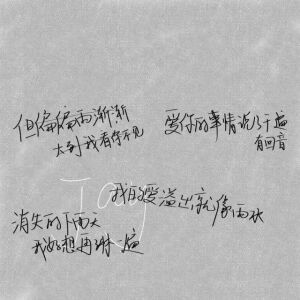 但偏偏雨渐渐
大到我看你不见
爱你的事情说了千遍
有回音
我的爱溢出就像雨水
消失的下雨天
我好想再淋一遍